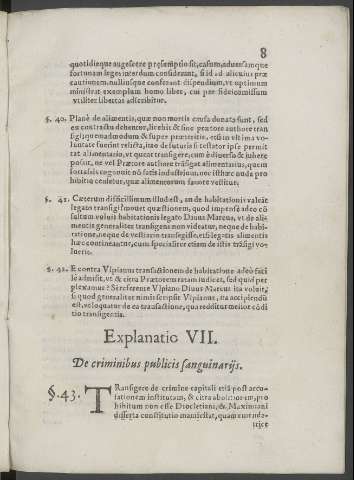 8
quotidieque augescere præsumptio sit, casum, adversamque
fortunam leges interdum considerant, si id ad alicuius præ
cautionem, nullius que conferant dispendium, ut optimum
ministrat exemplum homo liber, cui per fideicommissum
utiliter libertas adscribitur.
§. 40. Planè de alimentis, quæ non mortis causa donata sunt, sed
ex contractu debentur, licebit & sine prætore authore tran
sigi; quemadmodum & super præteritis, etsi in ultima vo-
luntate fuerint relicta, imo de futuris si testator ipse permit
tat alimentario, ut queat transigere, cum è diverso & jubere
possit, ne vel Prætore authore trāsigat alimentarius, quem
fortassis cognovit nō satis industrium, nec isthæc nuda pro
hibitio censetur, quæ alimentorum favore vestitur.
§. 41. Cæterum difficillimum illud est, an de habitationis valeat
legato transigi? movet quæstionem, quod impensè adeo cō
sultum voluit habitationis legato Divus Marcus, ut de ali-
mentis generaliter transigens non videatur, neque de habi-
tatione, neque de vestiario transegisse, etsi legatis alimentis
hæc contineantur, cum specialiter etiam de istis trāsigi vo-
luerit.
§. 42. E contra Ulpianus transactionem de habitatione adeò faci
lè admisit, ut & citra Prætorem ratam iudicet, sed quid per
plexamur? Si referente Ulpiano Divus Marcus ita voluit,
si quod generaliter miniscripsit Ulpianus, ita accipiendū
est, ve loquatur de ea transactione, qua redditur melior cōdi
tio transigentis.
Explanatio VII.
De criminibus publicis sanguinarijs.
§. 43. TRansigere de crimine capitali etiā post accu-
sationem institutam, & citra abolitionem, pro
hibitum non esse Diocletiani, & Maximiani
disserta constitutio manifestat, quam eruenda-